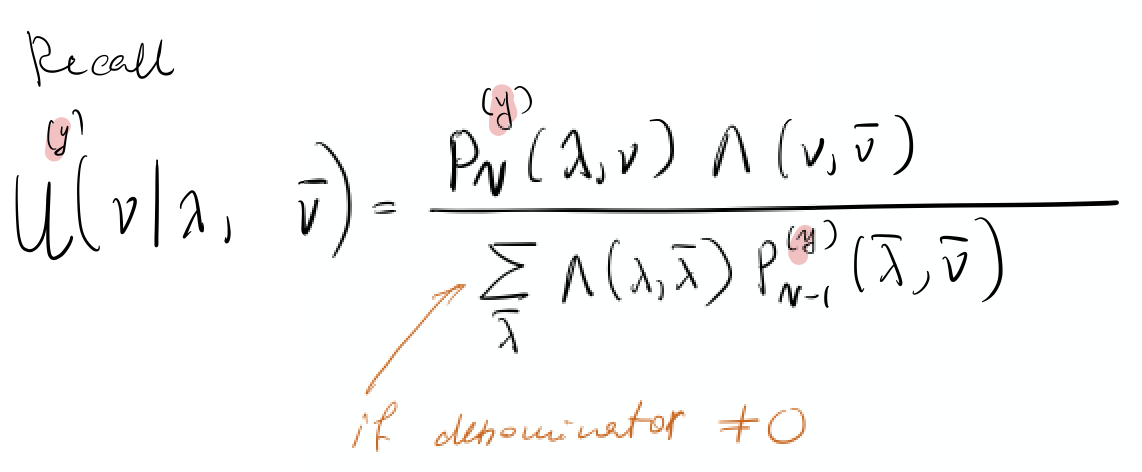 Recall
U^{(y)}(ν|λ, ν̄) = \frac{P_N^{(y)}(λ,ν) Λ(ν,ν̄)}{\sum_{λ̄} Λ(λ,λ̄) P_{N-1}^{(y)}(λ̄,ν̄)}
if denominator ≠ 0